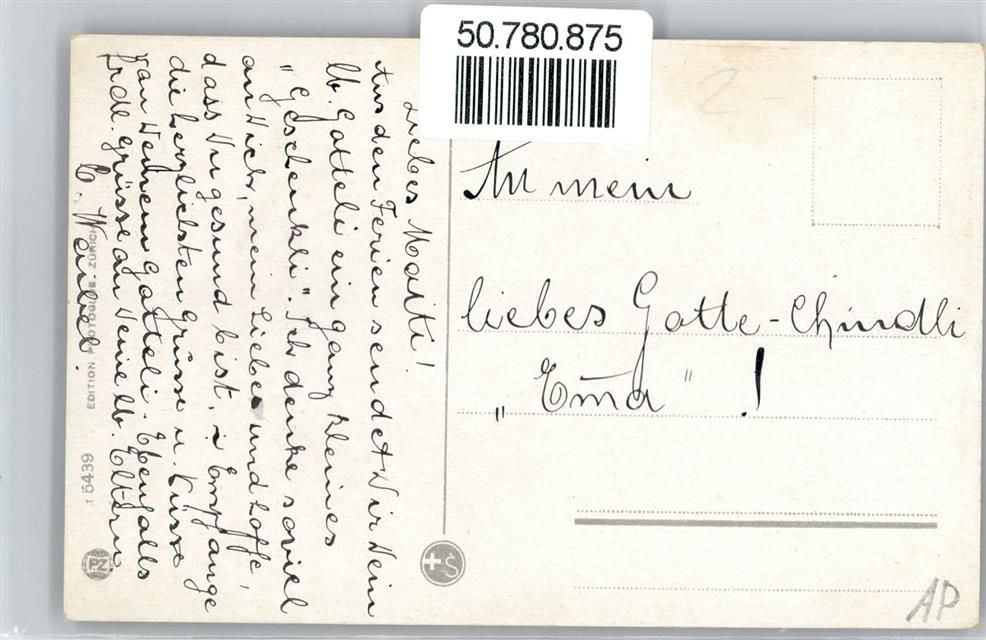 50.780.875
Liebes Maiti!
Aus den Ferien sendet Dir Dein
lb. Gotteli ein ganz kleines
"Geschenkli". Ich denke soviel
an Dich, mein Liebes und hoffe,
dass Du gesund bist. Empfange
die herzlichsten Grüsse u. Küsse
von Deinem Gotteli. Ebenfalls
frdl. Grüsse an Deine lb. Eltern
E. Weibel.
An mein
liebes Gotte-Chindli
"Em̅a" !
EDITION PHOTOGLOB. ZÜRICH
T 5439
PZ
S
AP
2